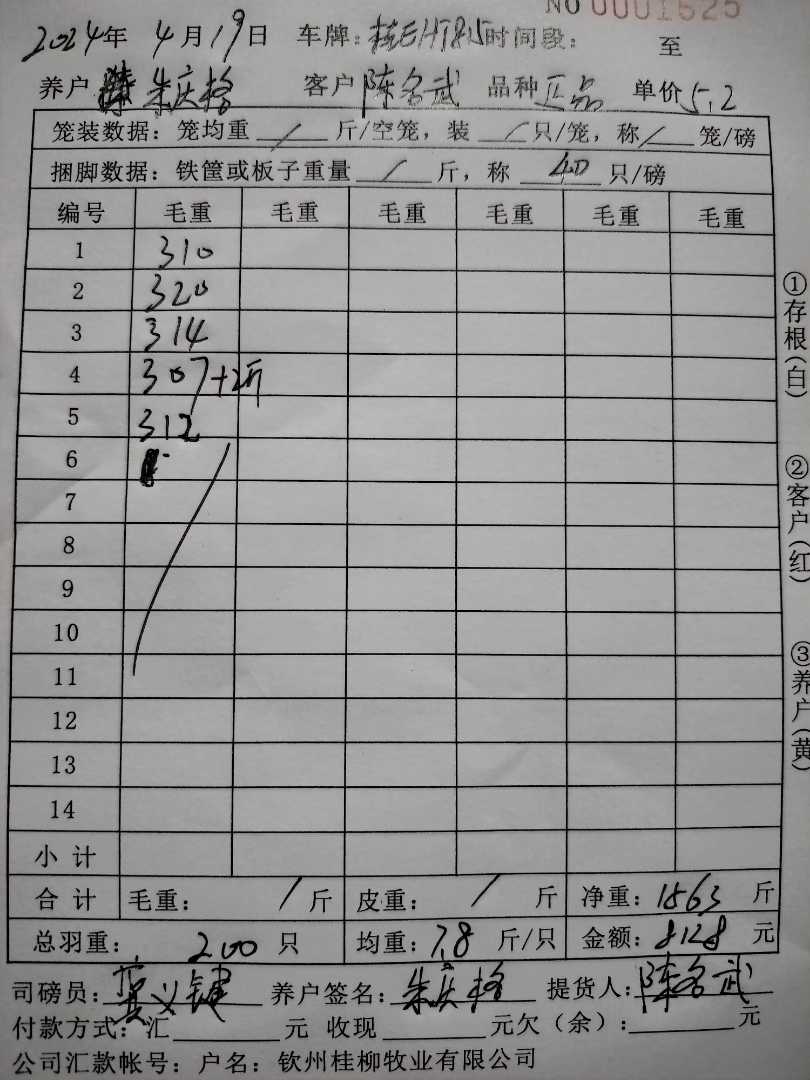 No 0001625
2024年 4月19日 车牌：桂EHT815 时间段： 至
养户 朱庆格 客户 陈名武 品种 正品 单价 5.2
笼装数据：笼均重 / 斤/空笼，装 / 只/笼，称 / 笼/磅
捆脚数据：铁筐或板子重量 / 斤，称 40 只/磅
编号 毛重 毛重 毛重 毛重 毛重 毛重
1 310
2 320
3 314
4 307+2斤
5 312
6
7
8
9
10
11
12
13
14
小 计
合 计 毛重： / 斤 皮重： / 斤 净重：1563 斤
总羽重： 200 只 均重：7.8 斤/只 金额：8128 元
司磅员： 义键 养户签名：朱庆格 提货人：陈名武
付款方式：汇 元 收现 元欠（余）： 元
公司汇款帐号：户名：钦州桂柳牧业有限公司
①存根(白)
②客户(红)
③养户(黄)